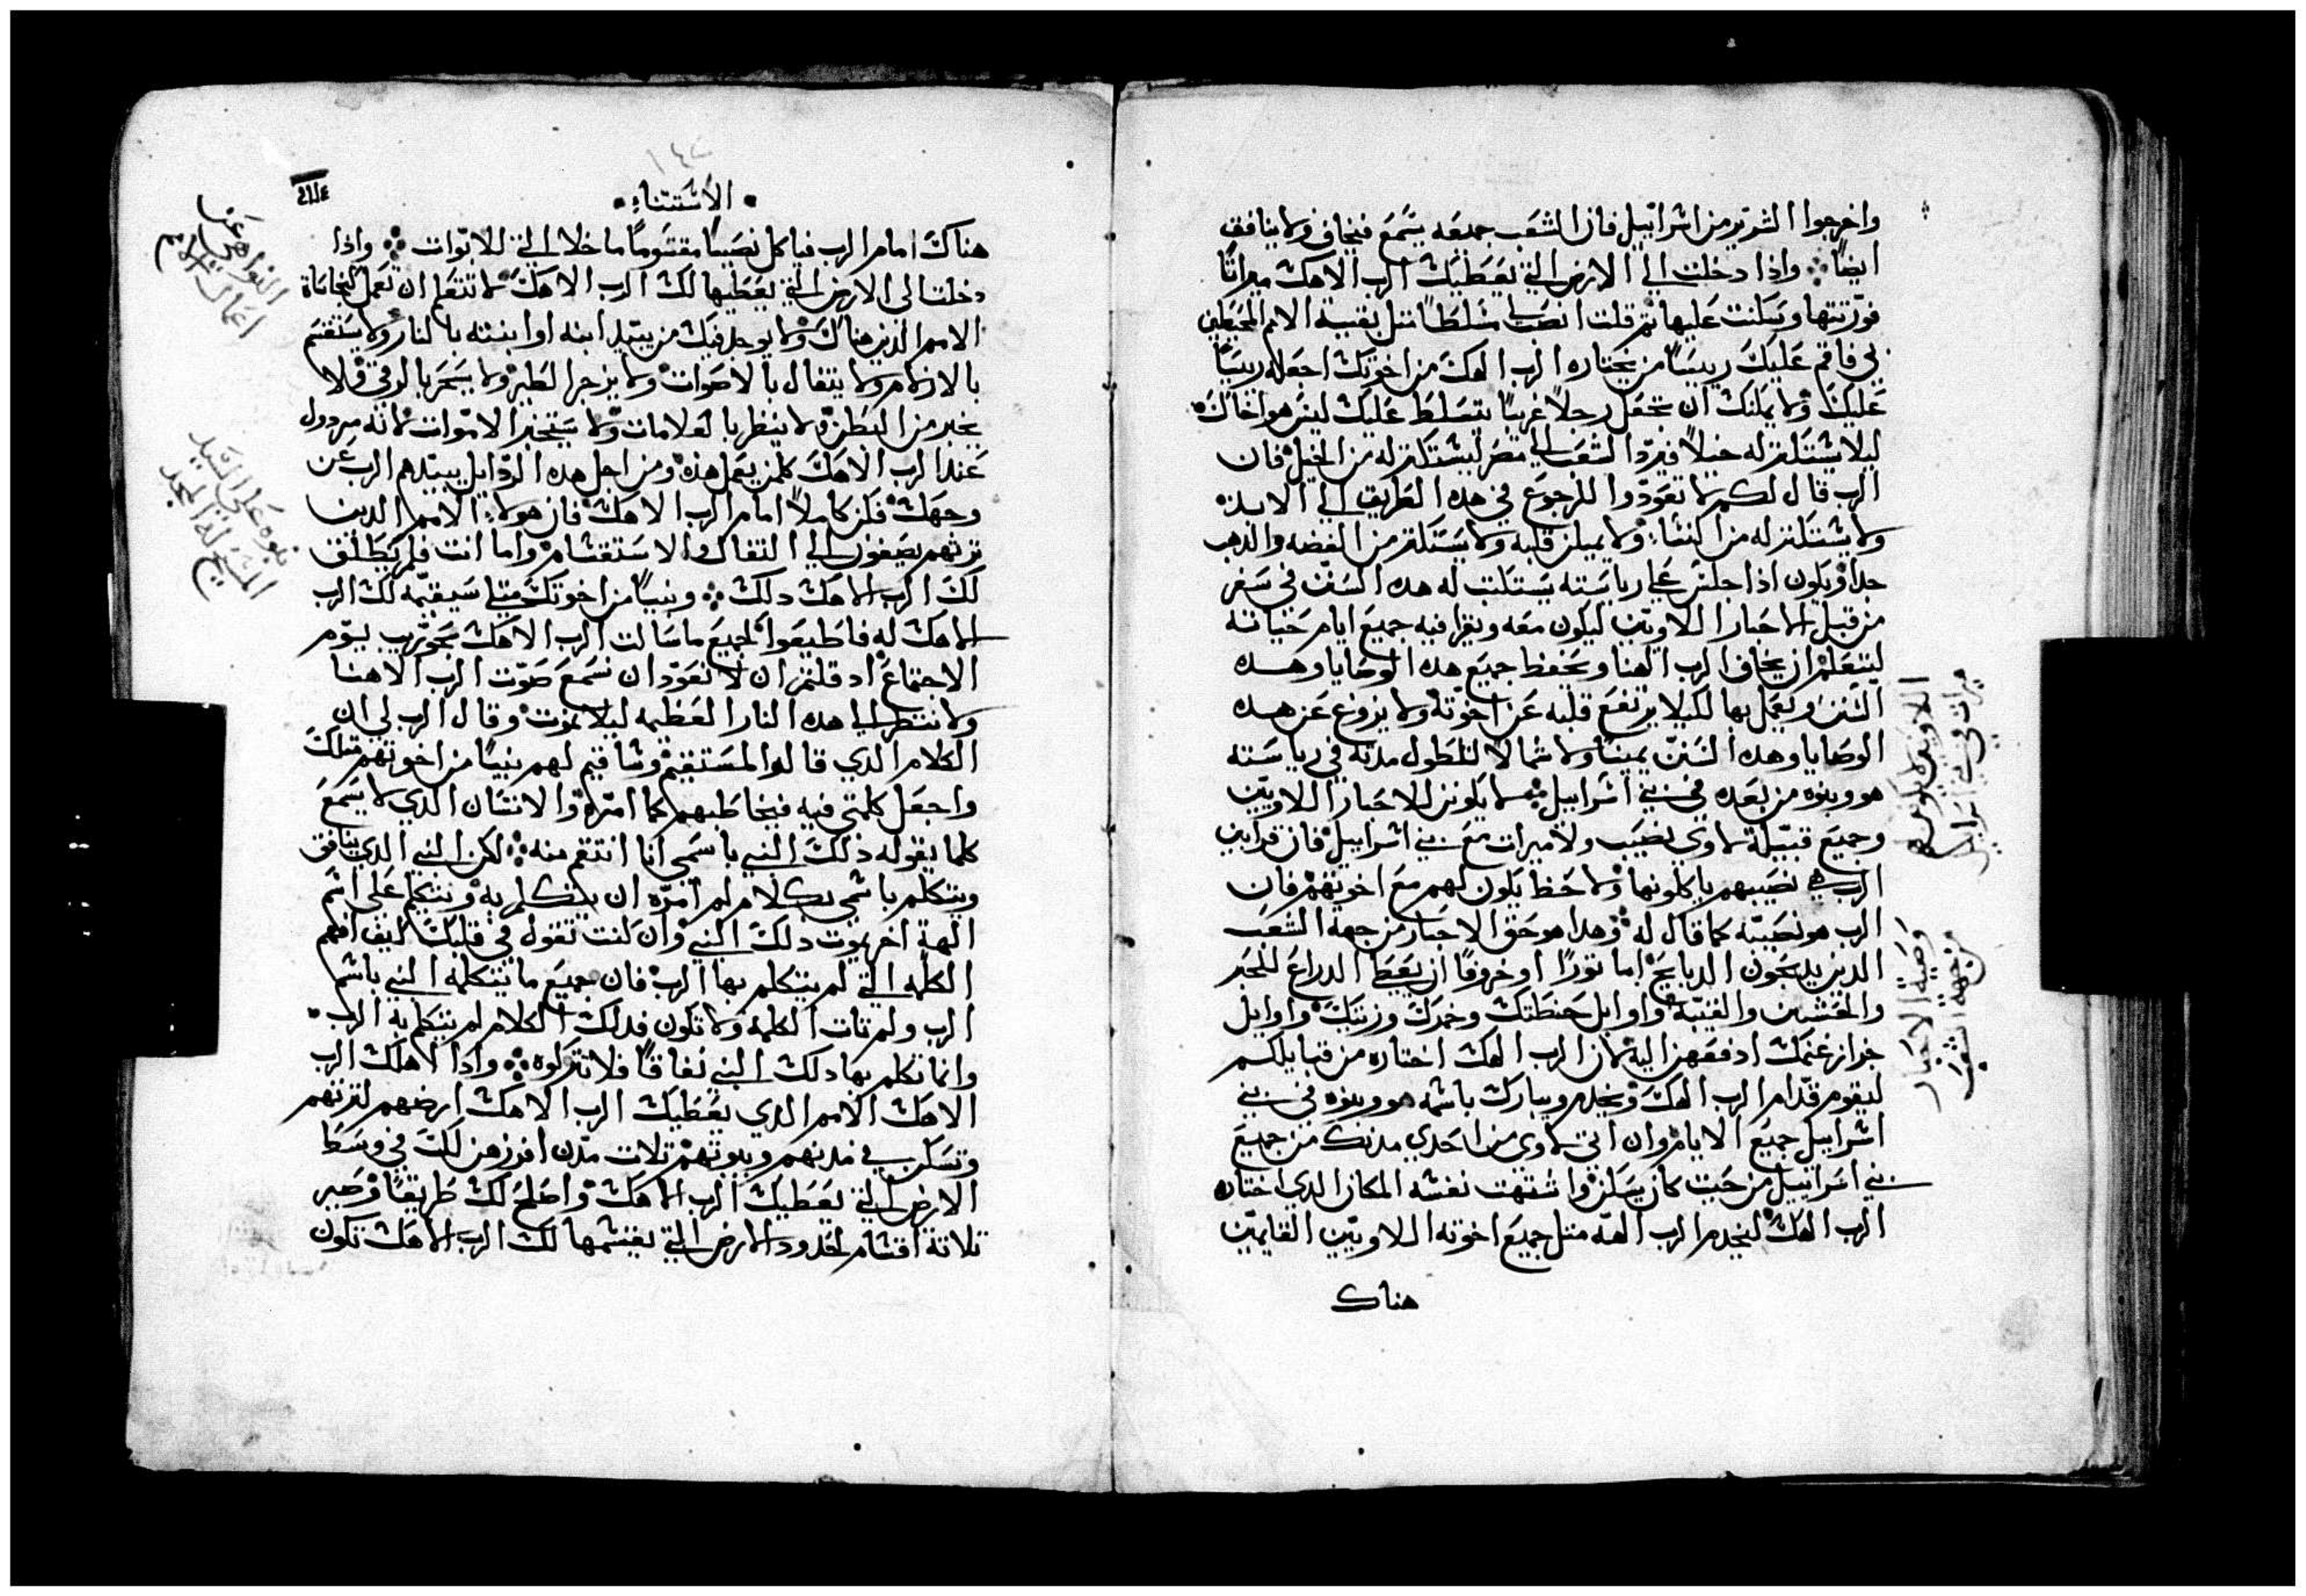 واخرجوا الشرير من اسرائييل فان الشعب جميعه يسمع فيخاف ولا ينافق
ايضاً واذا دخلت الي الارض التي يعطيك الرب الاهك ميراثا
فورثتها وسكنت عليها ثم قلت انصب لي مسلطاً مثل بقية الامم المحيطين
بي فاقم عليك رييسا من يختاره الرب الهك من اخوتك اجعله رييسًا
عليك ولا يمكنك ان تجعل رجلاً غريباً يتسلط عليك ليس هو اخاك
ليلا يستكتر له خيلاً فيرد الشعب الي مصر ليستكتر له من الخيل فان
الرب قال لكم لا تعودوا للرجوع في هذه الطريق الي الابد
ولا يستكتر له من النسا ولا يميلن قلبه ولا يستكتر من الفضه والدهب
جدا ويكون اذا جلس علي رياسته يستكتب له هده السنن في سفر
من قبل الاحبار اللاويين ليكون معه ويقرا فيه جميع ايام حياته
ليتعلم ان يخاف الرب الهنا ويحفظ جميع هده الوصايا وهده
السنن ويعمل بها لكيلا يرتفع قلبه عن اخوته ولا يزوغ عن هده
الوصايا وهده السنن يمينا ولا شمالا لتطول مدته في رياسته
هو وبنوه من بعده في بني اسراييل لا يكونن للاحبار اللاويين
وجميع قبيلة لاوي نصيب ولا ميرات مع بني اسراييل فان قرابين
الرب هي نصيبهم ياكلونها ولا حظ يكون لهم مع اخوتهم فان
الرب هو نصيبه كما قال له وهدا هو حق الاحبار من جهة الشعب
الدين يدبحون الدبايح اما تورًا او خروفًا ان يعطا الدراع للحبر
والخشين والقبه واوايل حنطتك وخمرك وزيتك واوايل
جزاز غنمك ادفعهن اليه لان الرب الهك اختاره من قبايلكم
ليقوم قدام الرب الهك ويخدم ويبارك باسمه هو وبنوه في بني
اسراييل جميع الايام وان اتي لاوي من احدي مدنك من جميع
بني اسراييل من حيت كان يسكن واشتهت نفسه المكان الدي اختاره
الرب الهك ليخدم الرب الهه متل جميع اخوته اللاويين القايمين
هناك
اللاويين لا يكون لهم
ميرات في بني اسراييل
وصية الاحبار
من جهة الشعب
١٤٧
الاستتناء
هناك امام الرب فياكل نصيبًا مقسوماً ما خلا التي للابوات واذا
دخلت الي الارض التي يعطيها لك الرب الاهك لا تتعلم ان تعمل كنجاسة
الامم الذين هناك ولا يوجد فيك من يبيد ابنه او ابنته بالنار ولا يستقسم
بالازلام ولا يتفال بالاصوات ولا يزجر الطير ولا يسحر بالرقي ولا
يخبر من البطن ولا ينظر بالعلامات ولا يستخبر الاموات لانه مردول
عند الرب الاهك كلمن يعمل هذه ومن اجل هده الردايل يبيدهم الرب عن
وجهك فكن كاملاً امام الرب الاهك فان هولاء الامم الدين
ترتهم يصغون الي التفال والاستقسام واما انت فلم يطلق
لك الرب الاهك دلك ونبياً من اخوتك متلي سيقيمه لك الرب
الاهك له فاطيعوا كجميع ما سالت الرب الاهك بحوريب يوم
الاجتماع اد قلتم ان لا نعود ان نسمع صوت الرب الاهنا
ولا ننتظر الي هده النار العظيمه ليلا نموت وقال الرب لي ان
الكلام الدي قالوا لمستقيم وساقيم لهم نبياً من اخوتهم متلك
واجعل كلمتي فيه فيخاطبهم كما امره والانسان الدي لا يسمع
كلما يقوله ذلك النبي باسمي انا انتقم منه لكن النبي الدي ينافق
ويتكلم باسمي بكلام لم امره ان يتكلم به ويتكلم علي اسم
الهة اخر يموت دلك النبي وان كنت تقول في قلبك كيف افهم
الكلمه التي لم يتكلم بها الرب فان جميع ما يتكلمه النبي باسم
الرب ولم تات الكلمه ولا تكون فدلك الكلام لم يتكلم به الرب
وانما تكلم بها دلك النبي نفاقًا فلا تتركوه واذا اهلك الرب
الاهك الامم الدي يعطيك الرب الاهك ارضهم لترتهم
وتسكن في مدنهم وبيوتهم تلات مدن افرزهن لك في وسط
الارض التي يعطيك الرب الاهك واصلح لك طريقاً وصير
تلاتة اقسام لحدود الارض التي يقسمها لك الرب الاهك تكون
النواهي عن
اعمال الامم
نبوه علي السيد
المسيح له المجد